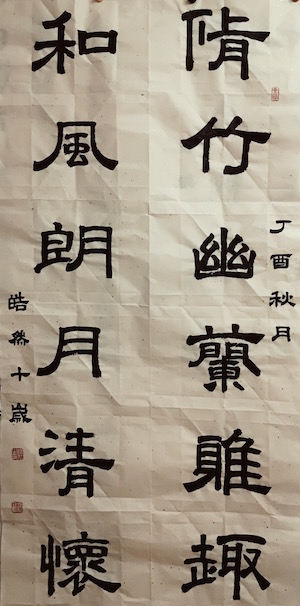 丁酉秋月
脩竹幽蘭雅趣
和風朗月清懷
皓然十歲